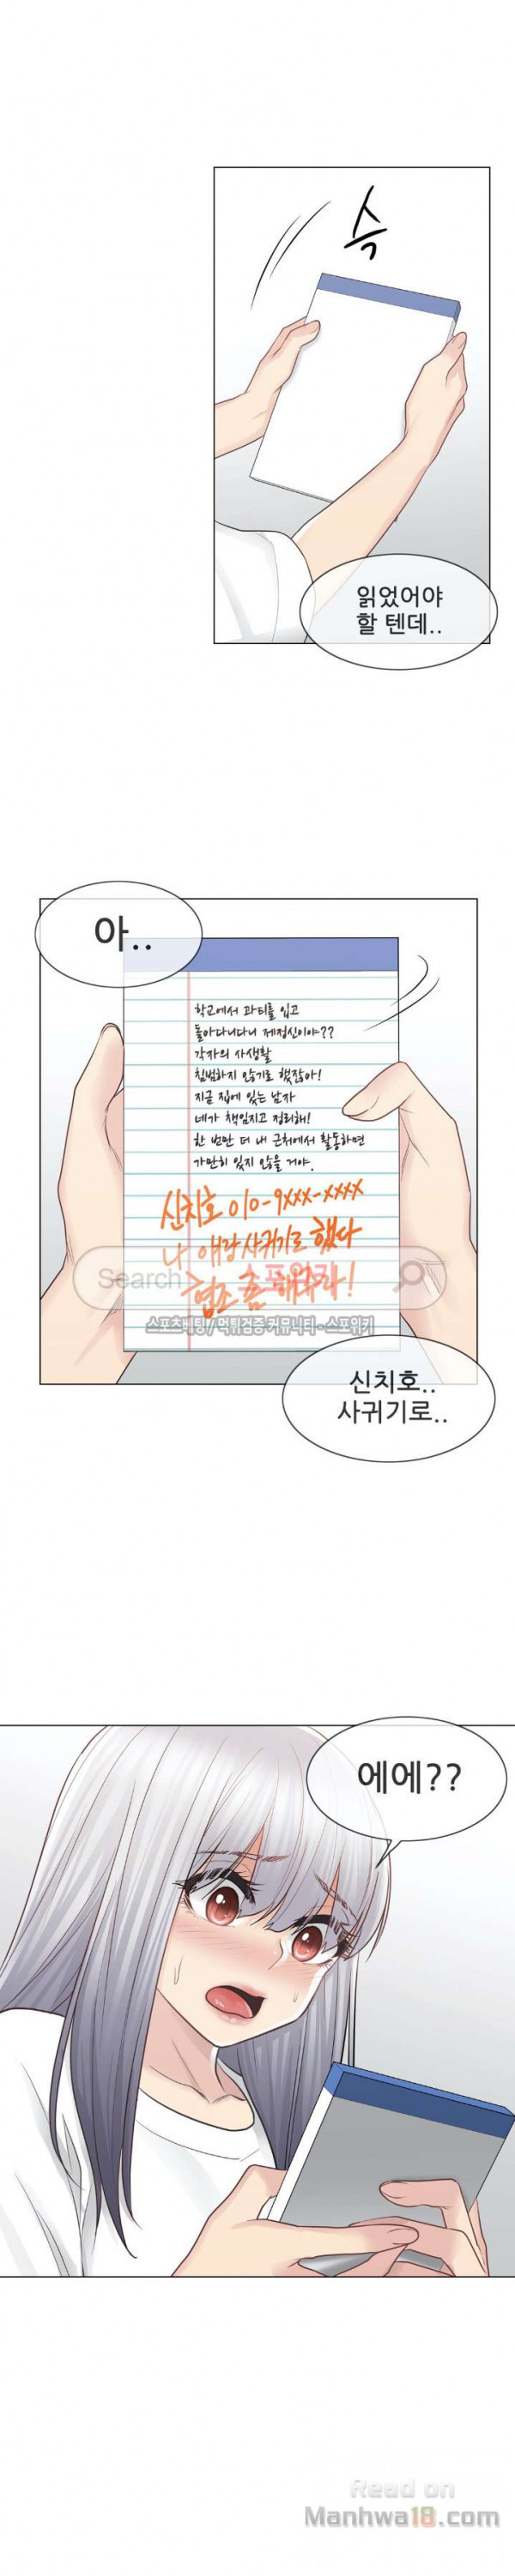 슥
읽었어야
할 텐데..
아..
학교에서 과티를 입고
돌아다니다니 제정신이야??
각자의 사생활
침범하지 않기로 했잖아!
지금 집에 있는 남자
네가 책임지고 정리해!
한 번만 더 내 근처에서 활동하면
가만히 있지 않을 거야.
신치호 010-9XXX-XXXX
나 얘랑 사귀기로 했다
협조 좀 해주라!
Search
스포위키
스포츠베팅/먹튀검증 커뮤니티 - 스포위키
신치호..
사귀기로..
에에??
Read on
Manhwa18.com